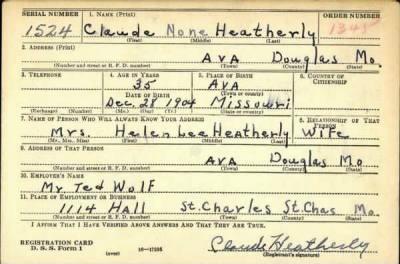 SERIAL NUMBER 1. NAME (Print) ORDER NUMBER
1524 Claude None Heatherly 1341
(First) (Middle) (Last)
2. ADDRESS (Print)
Ava Douglas Mo.
(Number and street or R. F. D. number) (Town) (County) (State)
3. TELEPHONE 4. AGE IN YEARS 5. PLACE OF BIRTH 6. COUNTRY OF CITIZENSHIP
35 Ava
DATE OF BIRTH (Town or county)
Dec. 28 1904 Missouri
(Exchange) (Number) (Mo.) (Day) (Yr.) (State or country)
7. NAME OF PERSON WHO WILL ALWAYS KNOW YOUR ADDRESS 8. RELATIONSHIP OF THAT PERSON
Mrs. Helen Lee Heatherly Wife
(Mr., Mrs., Miss) (First) (Middle) (Last)
9. ADDRESS OF THAT PERSON
Ava Douglas Mo
(Number and street or R. F. D. number) (Town) (County) (State)
10. EMPLOYER'S NAME
Mr. Ted Wolf
11. PLACE OF EMPLOYMENT OR BUSINESS
1114 Hall St. Charles St. Chas Mo.
(Number and street or R. F. D. number) (Town) (County) (State)
I AFFIRM THAT I HAVE VERIFIED ABOVE ANSWERS AND THAT THEY ARE TRUE.
REGISTRATION CARD
D. S. S. Form 1 (over) 16-17105 Claude Heatherly
(Registrant's signature)